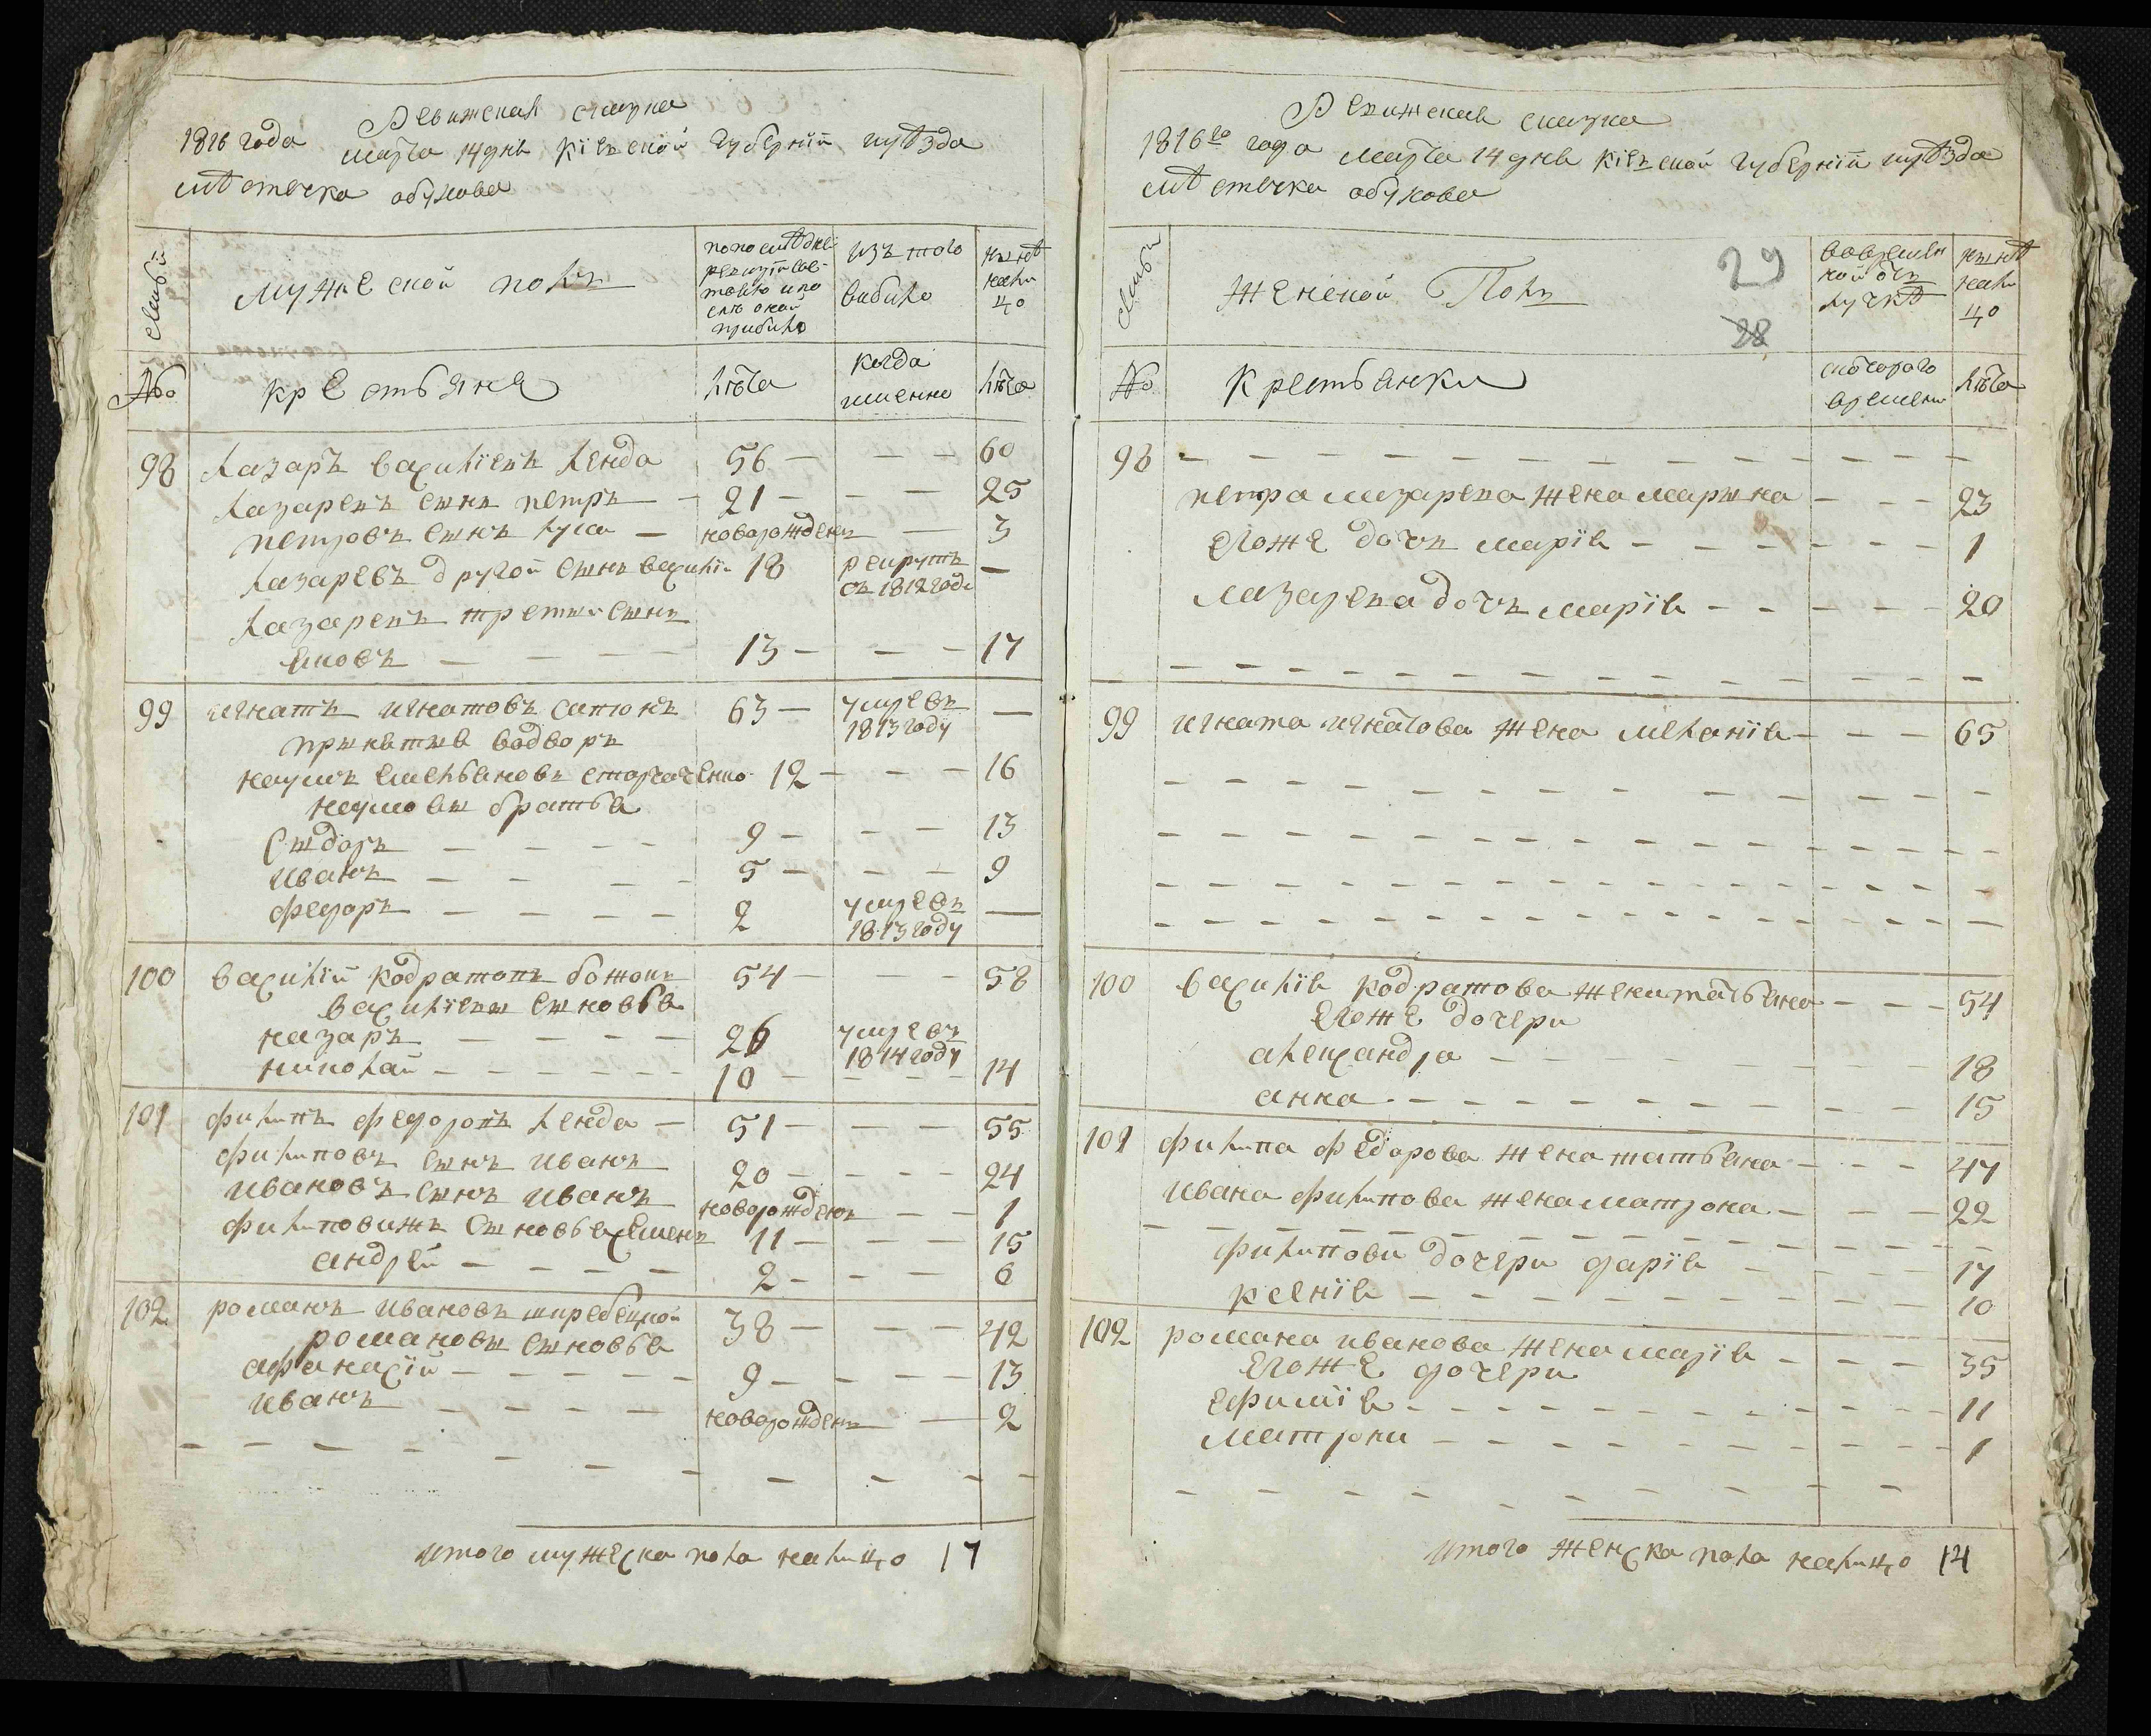 Ревижская скаска
1816 года марта 14 дня Кіевской губерніи и уѣзда
мѣстечка обухова
Семьи
Мужеской полъ
по последней ревизіи состояло и после оной прибило
изъ того выбило
нынѣ налицо
№
крестьяне
лѣта
когда именно
лѣта
98 лазаръ василіевъ ленда 56 — — — 60
лазаревъ сынъ петръ — — 21 — — — 25
петровъ сынъ кузма — новорожденъ — 3
лазаревъ другой сынъ василій 18 рекрутъ въ 1812 годе —
лазаревъ третій сынъ
яковъ — — — — 13 — — — 17
99 игнатъ игнатовъ сапюкъ 63 — умревъ 1813 году —
принятые во дворъ
наумъ емельяновъ 12 — — — 16
наумовы братья
сыдоръ — — — — — 9 — — — 13
иванъ — — — — 5 — — — 9
федоръ — — — — — 2 умревъ 1813 году —
100 василій кодратовъ божокъ 54 — — — 58
василіевы сыновья
назаръ — — — — — 26 умревъ 1814 году
николай — — — — — — 10 — — — — 14
101 филипъ федоровъ ленда — 51 — — — 55
филиповъ сынъ иванъ 20 — — — — 24
ивановъ сынъ иванъ новорожденъ — — 1
филиповижъ сыновья семенъ 11 — — — 15
андрей — — — — — 2 — — — 6
102 романъ ивановъ 38 — — — 42
романовы сыновья
афанасій — — — — — 9 — — — — 13
иванъ — — — — — новорожденъ — 2
— — — — — — — — — —
итого мужеска пола налицо 17
Ревижская скаска
1816го года марта 14 дня Кіевской губерніи и уѣзда
мѣстечка обухова
Семьи
Женской Полъ
29
28
во временной отлучкѣ
нынѣ налицо
№
Крестьянки
с которого времени
лѣта
98 — — — — — — — — — — — — — — —
петра лазарева жена марына — — — 23
егоже дочъ марія — — — — — — — 1
лазарева дочъ марія — — — — — 20
— — — — — — — — — — — — — — —
99 игната игнатова жена меланія — — — 65
— — — — — — — — — — — — — — —
— — — — — — — — — — — — — — —
— — — — — — — — — — — — — — —
— — — — — — — — — — — — — — —
100 василія кодратова жена татьяна — — — 54
егоже дочери
александра — — — — — — 18
анна — — — — — — — — — — 15
101 филипа федорова жена татьяна — — — 47
ивана филипова жена матрона — — — 22
— — — — — — — — — — — — — —
филипови дочери дарія — — — — 17
ксенія — — — — — — — — — — 10
102 романа иванова жена марія — — — 35
егоже дочери
ефимія — — — — — — — — — — 11
матрона — — — — — — — — — — 1
— — — — — — — — — — —
итого женска пола налицо 14